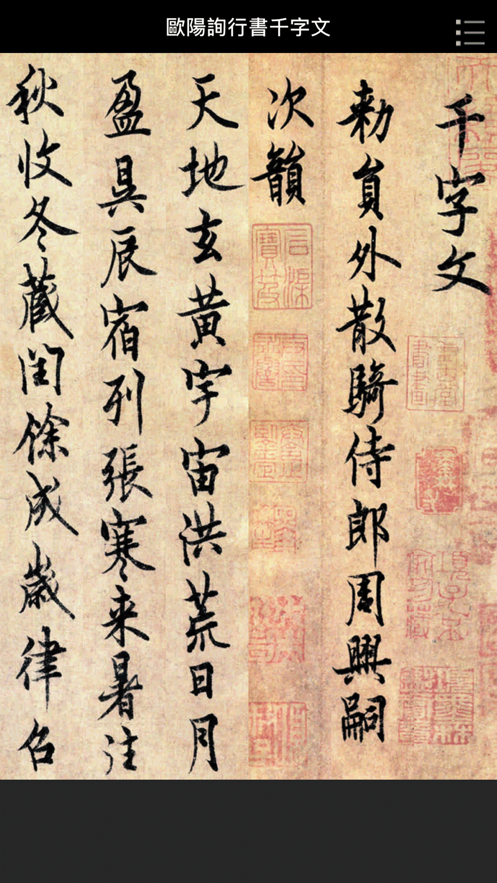 歐陽詢行書千字文
千字文
勑員外散騎侍郎周興嗣
次韻
天地玄黄宇宙洪荒日月
盈昃辰宿列張寒来暑往
秋收冬藏閏餘成歲律召